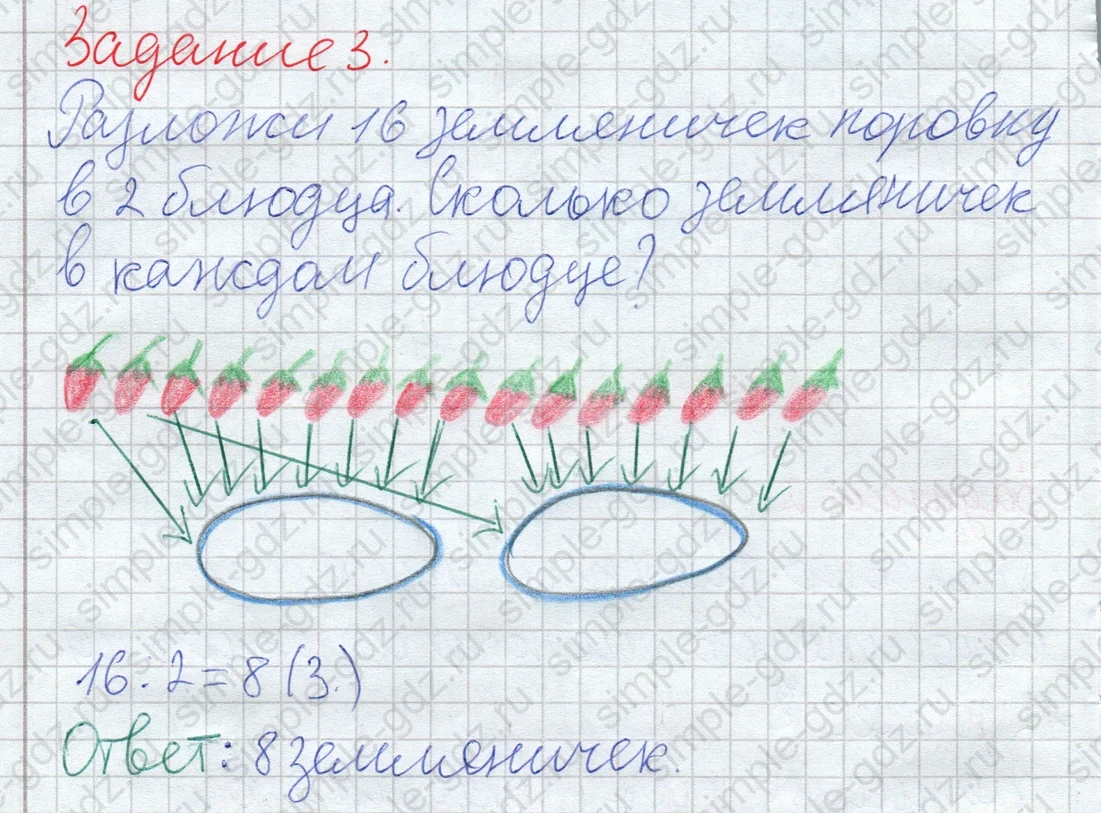 Задание 3.
Разложи 16 земляничек поровну
в 2 блюдца. Сколько земляничек
в каждом блюдце?
16:2=8 (з.)
Ответ: 8 земляничек.
simple-gdz.ru